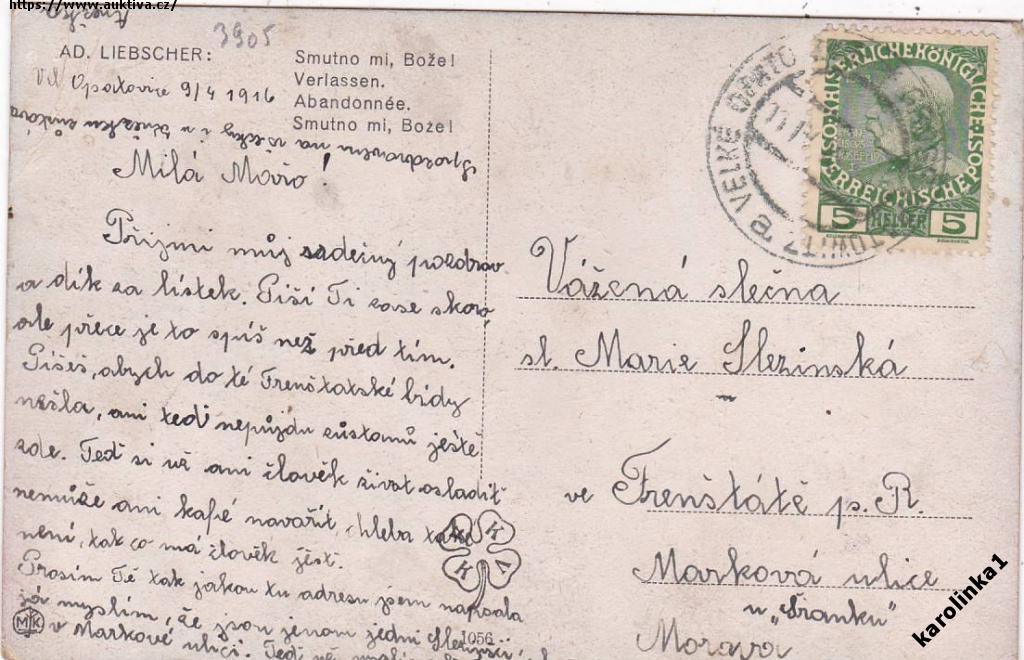 https://www.auktiva.cz/
3905
AD. LIEBSCHER:
Smutno mi, Bože!
Verlassen.
Abandonnée.
Smutno mi, Bože!
Vel Opatovice 9/4 1916
Milá Mařo!
Přijmi můj srdečný pozdrav
a dík za lístek. Píši Ti zase skoro,
ale přece je to spíš než před tím.
Píšeš, abych do té Frenštatské bídy
nešla, ani teď nepůjdu zůstanu ještě
zde. Teď si už ani člověk život osladit
nemůže ani kafé navařit, chleba také
není, tak co má člověk jěst.
Prosím Tě tak jakou tu adresu jsem napsala
já myslím, že jsou jenom jedni Slezinští
v Markové ulici. Teď už
K K V K
MK
1056
VELKÉ OPATO
5 HELLER 5
KAISERLICHE KÖNIGLICHE
ÖSTERREICHISCHE POST
Vážená slečna
sl. Marie Slezinská
ve Frenštátě p. R.
Marková ulice
u „Franku"
Morava
karolinka1